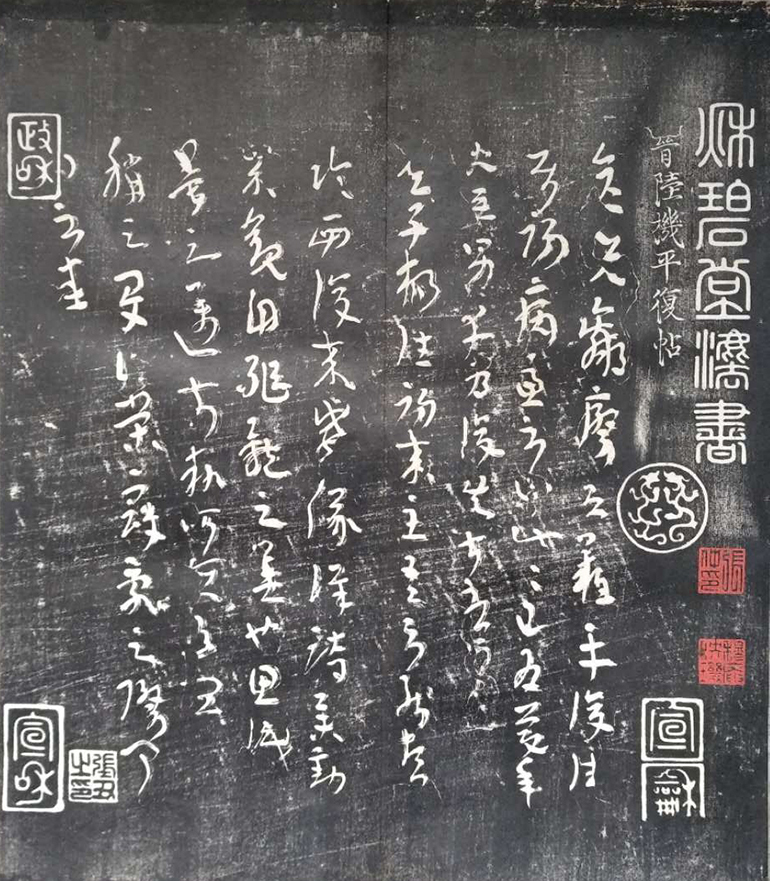 秋碧堂灋書
晉陸機平復帖
彥先羸瘵恐難平復往
屬初病慮不止此此已為慶承
使唯男幸為復失前憂耳
吳子楊往初來主吾不能盡
臨西復來威儀詳跱舉動
成觀自軀體之美也思識
量之邁前執所恒有宜
稱之夏伯榮寇亂之際聞
問不悉
宣龢
政和
宣和
張丑之印